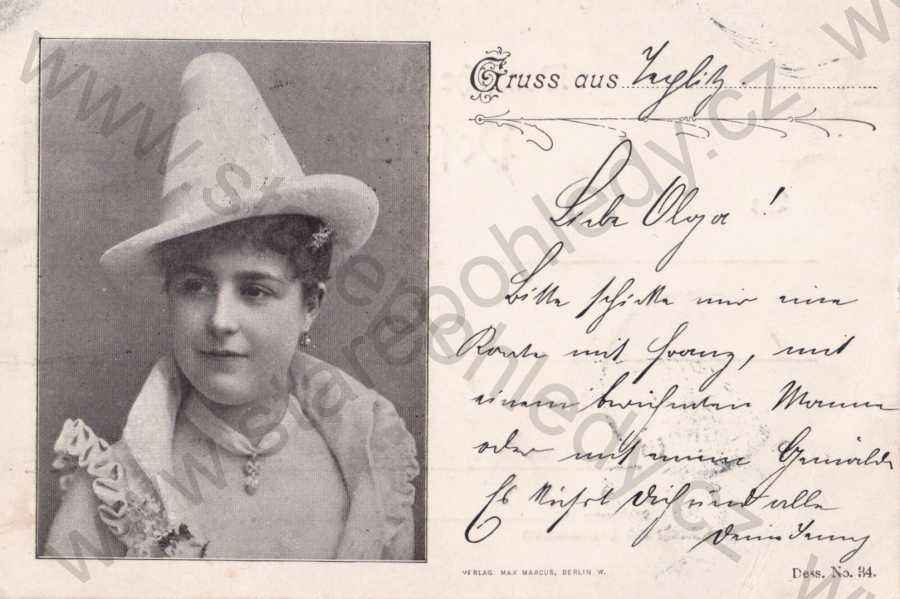 Gruss aus Teplitz.
Liebe Olga!
Bitte schicke mir eine
Karte mit Franz, mit
einem berühmten Manne
oder mit einem Gemälde
Es küßt Dich und alle
Deine Jenny
VERLAG MAX MARCUS, BERLIN W.
Dess. No. 34.
www.starepohledy.cz
www.starepohledy.cz